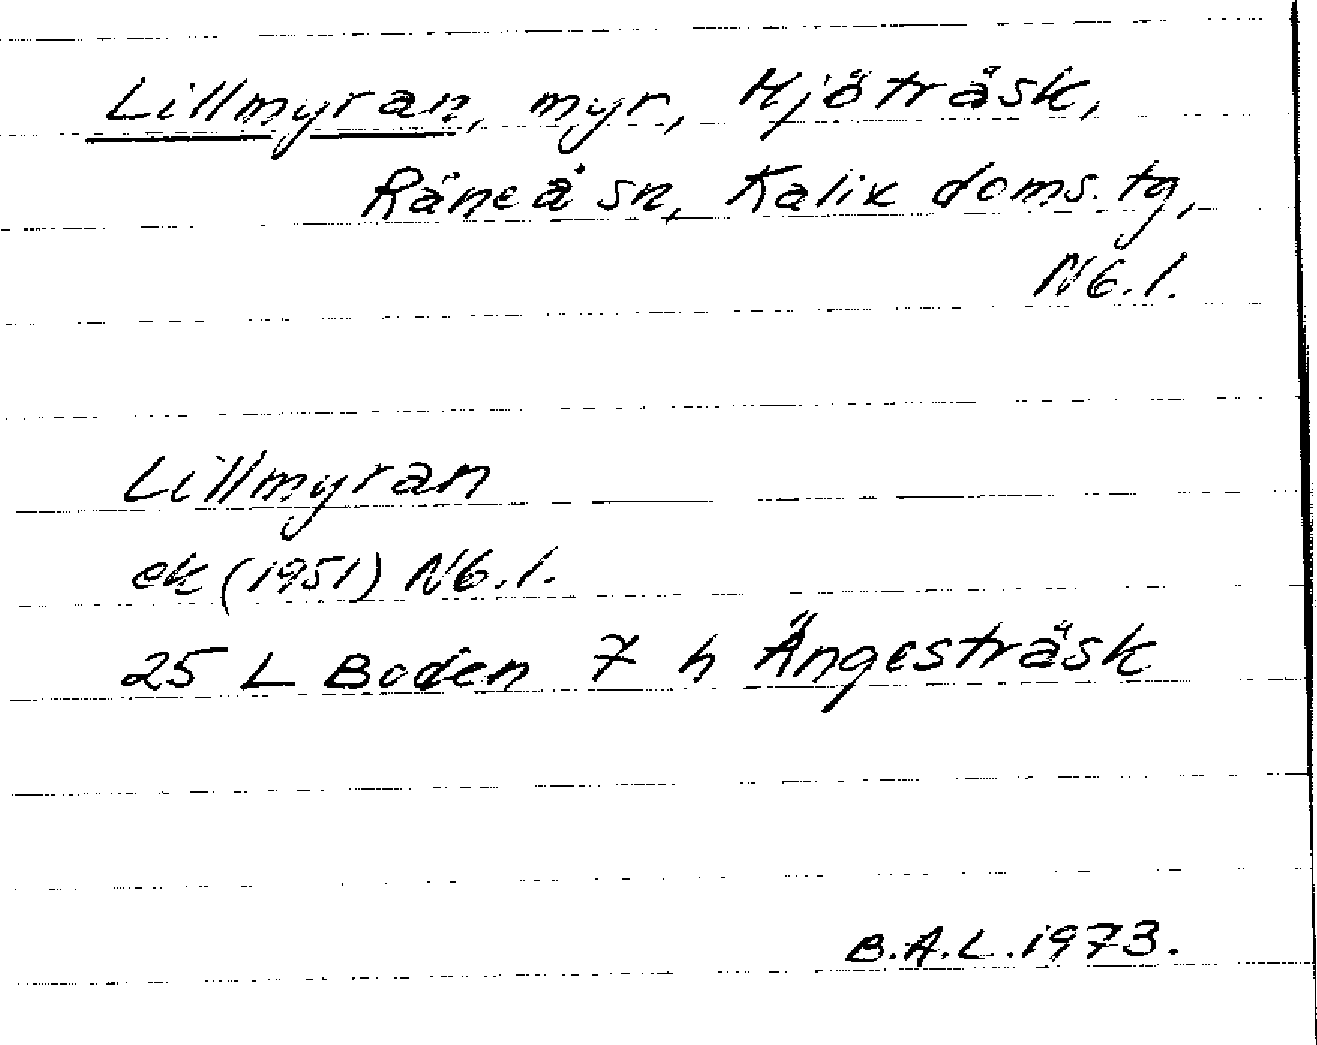 Lillmyran, myr, Hjöträsk,
Räneå sn, Kalix doms. tg,
Nb. l.
Lillmyran
ek (1951) Nb. l.
25 L Boden 7 h Ängesträsk
B.A.L. 1973.